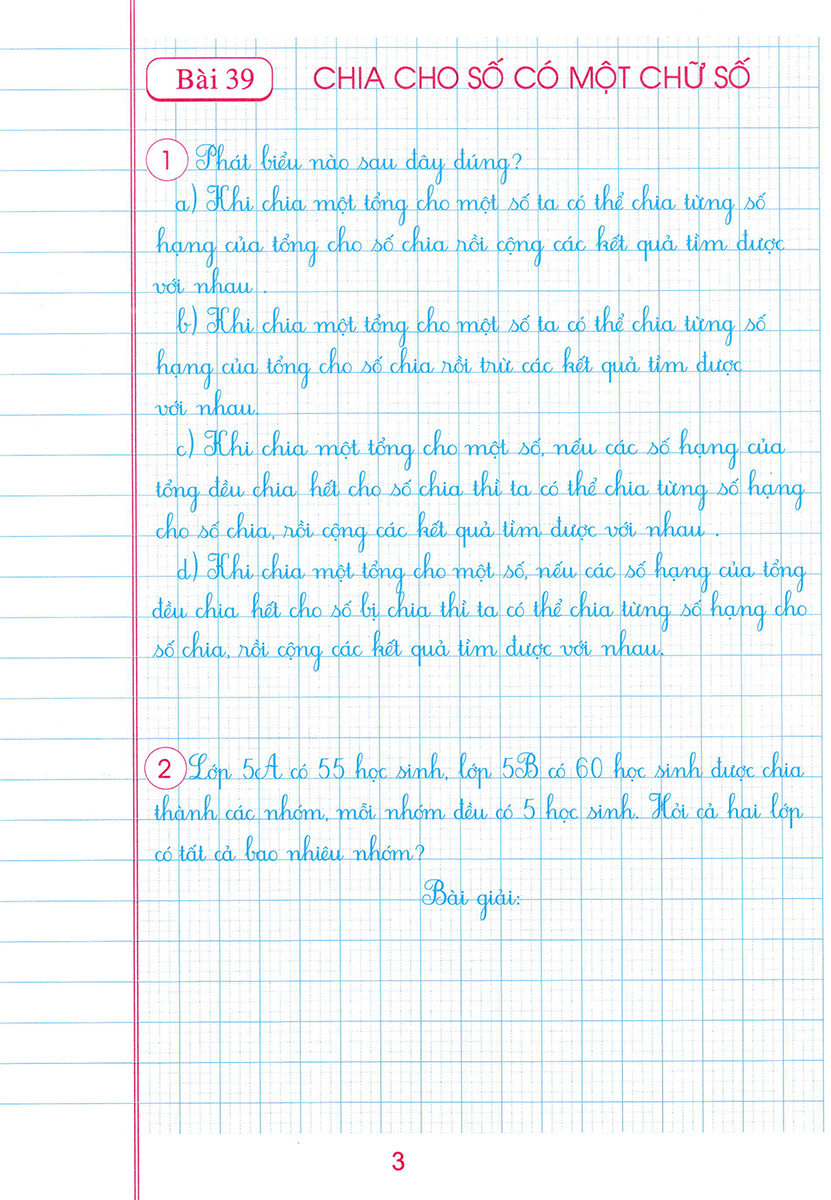 Bài 39 CHIA CHO SỐ CÓ MỘT CHỮ SỐ
1 Phát biểu nào sau đây đúng?
a) Khi chia một tổng cho một số ta có thể chia từng số
hạng của tổng cho số chia rồi cộng các kết quả tìm được
với nhau .
b) Khi chia một tổng cho một số ta có thể chia từng số
hạng của tổng cho số chia rồi trừ các kết quả tìm được
với nhau.
c) Khi chia một tổng cho một số, nếu các số hạng của
tổng đều chia hết cho số chia thì ta có thể chia từng số hạng
cho số chia, rồi cộng các kết quả tìm được với nhau .
d) Khi chia một tổng cho một số, nếu các số hạng của tổng
đều chia hết cho số bị chia thì ta có thể chia từng số hạng cho
số chia, rồi cộng các kết quả tìm được với nhau.
2 Lớp 5A có 55 học sinh, lớp 5B có 60 học sinh được chia
thành các nhóm, mỗi nhóm đều có 5 học sinh. Hỏi cả hai lớp
có tất cả bao nhiêu nhóm?
Bài giải:
3